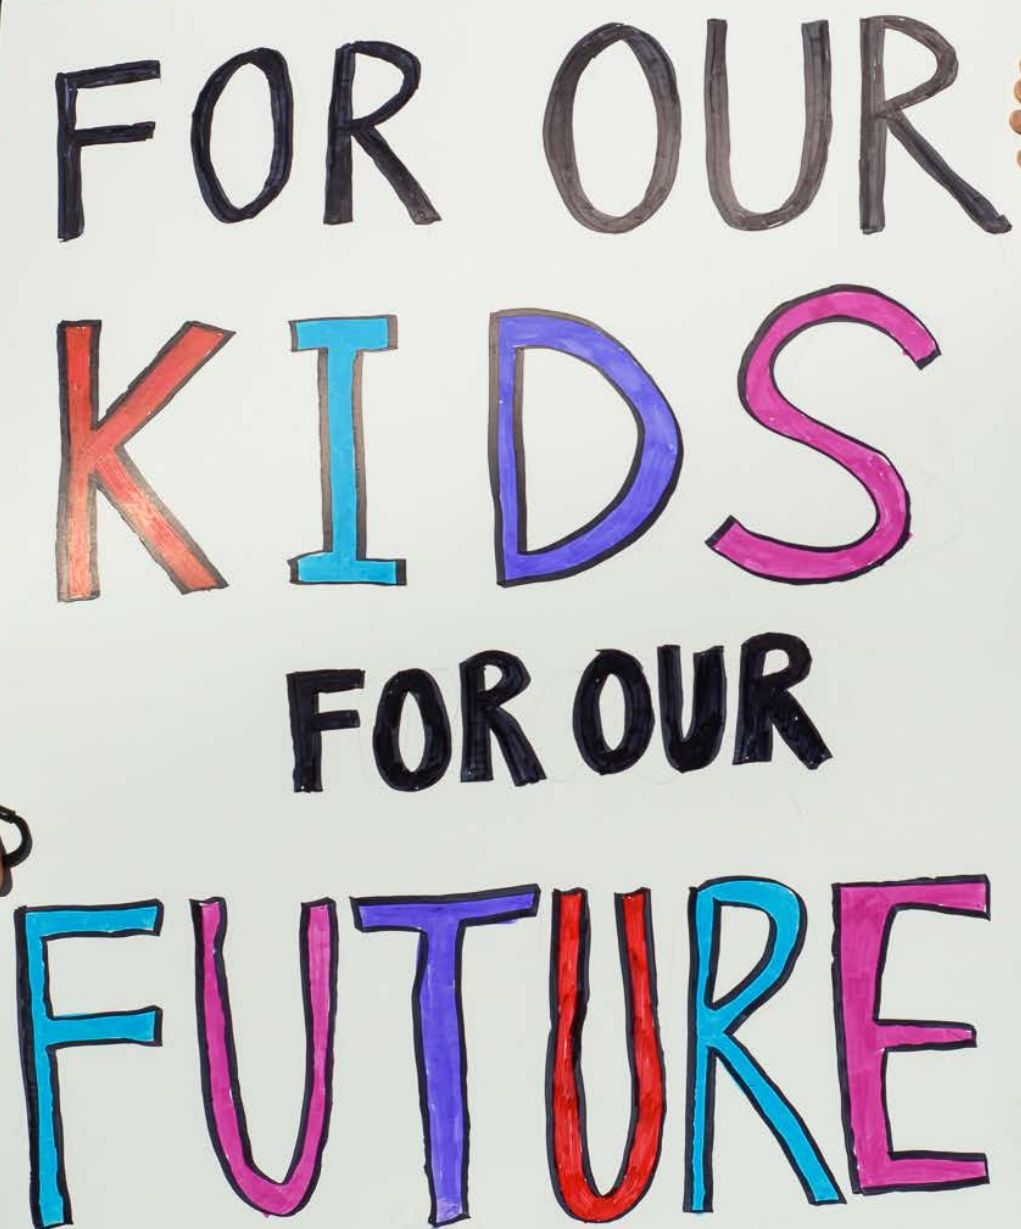 FOR OUR
KIDS
FOR OUR
FUTURE